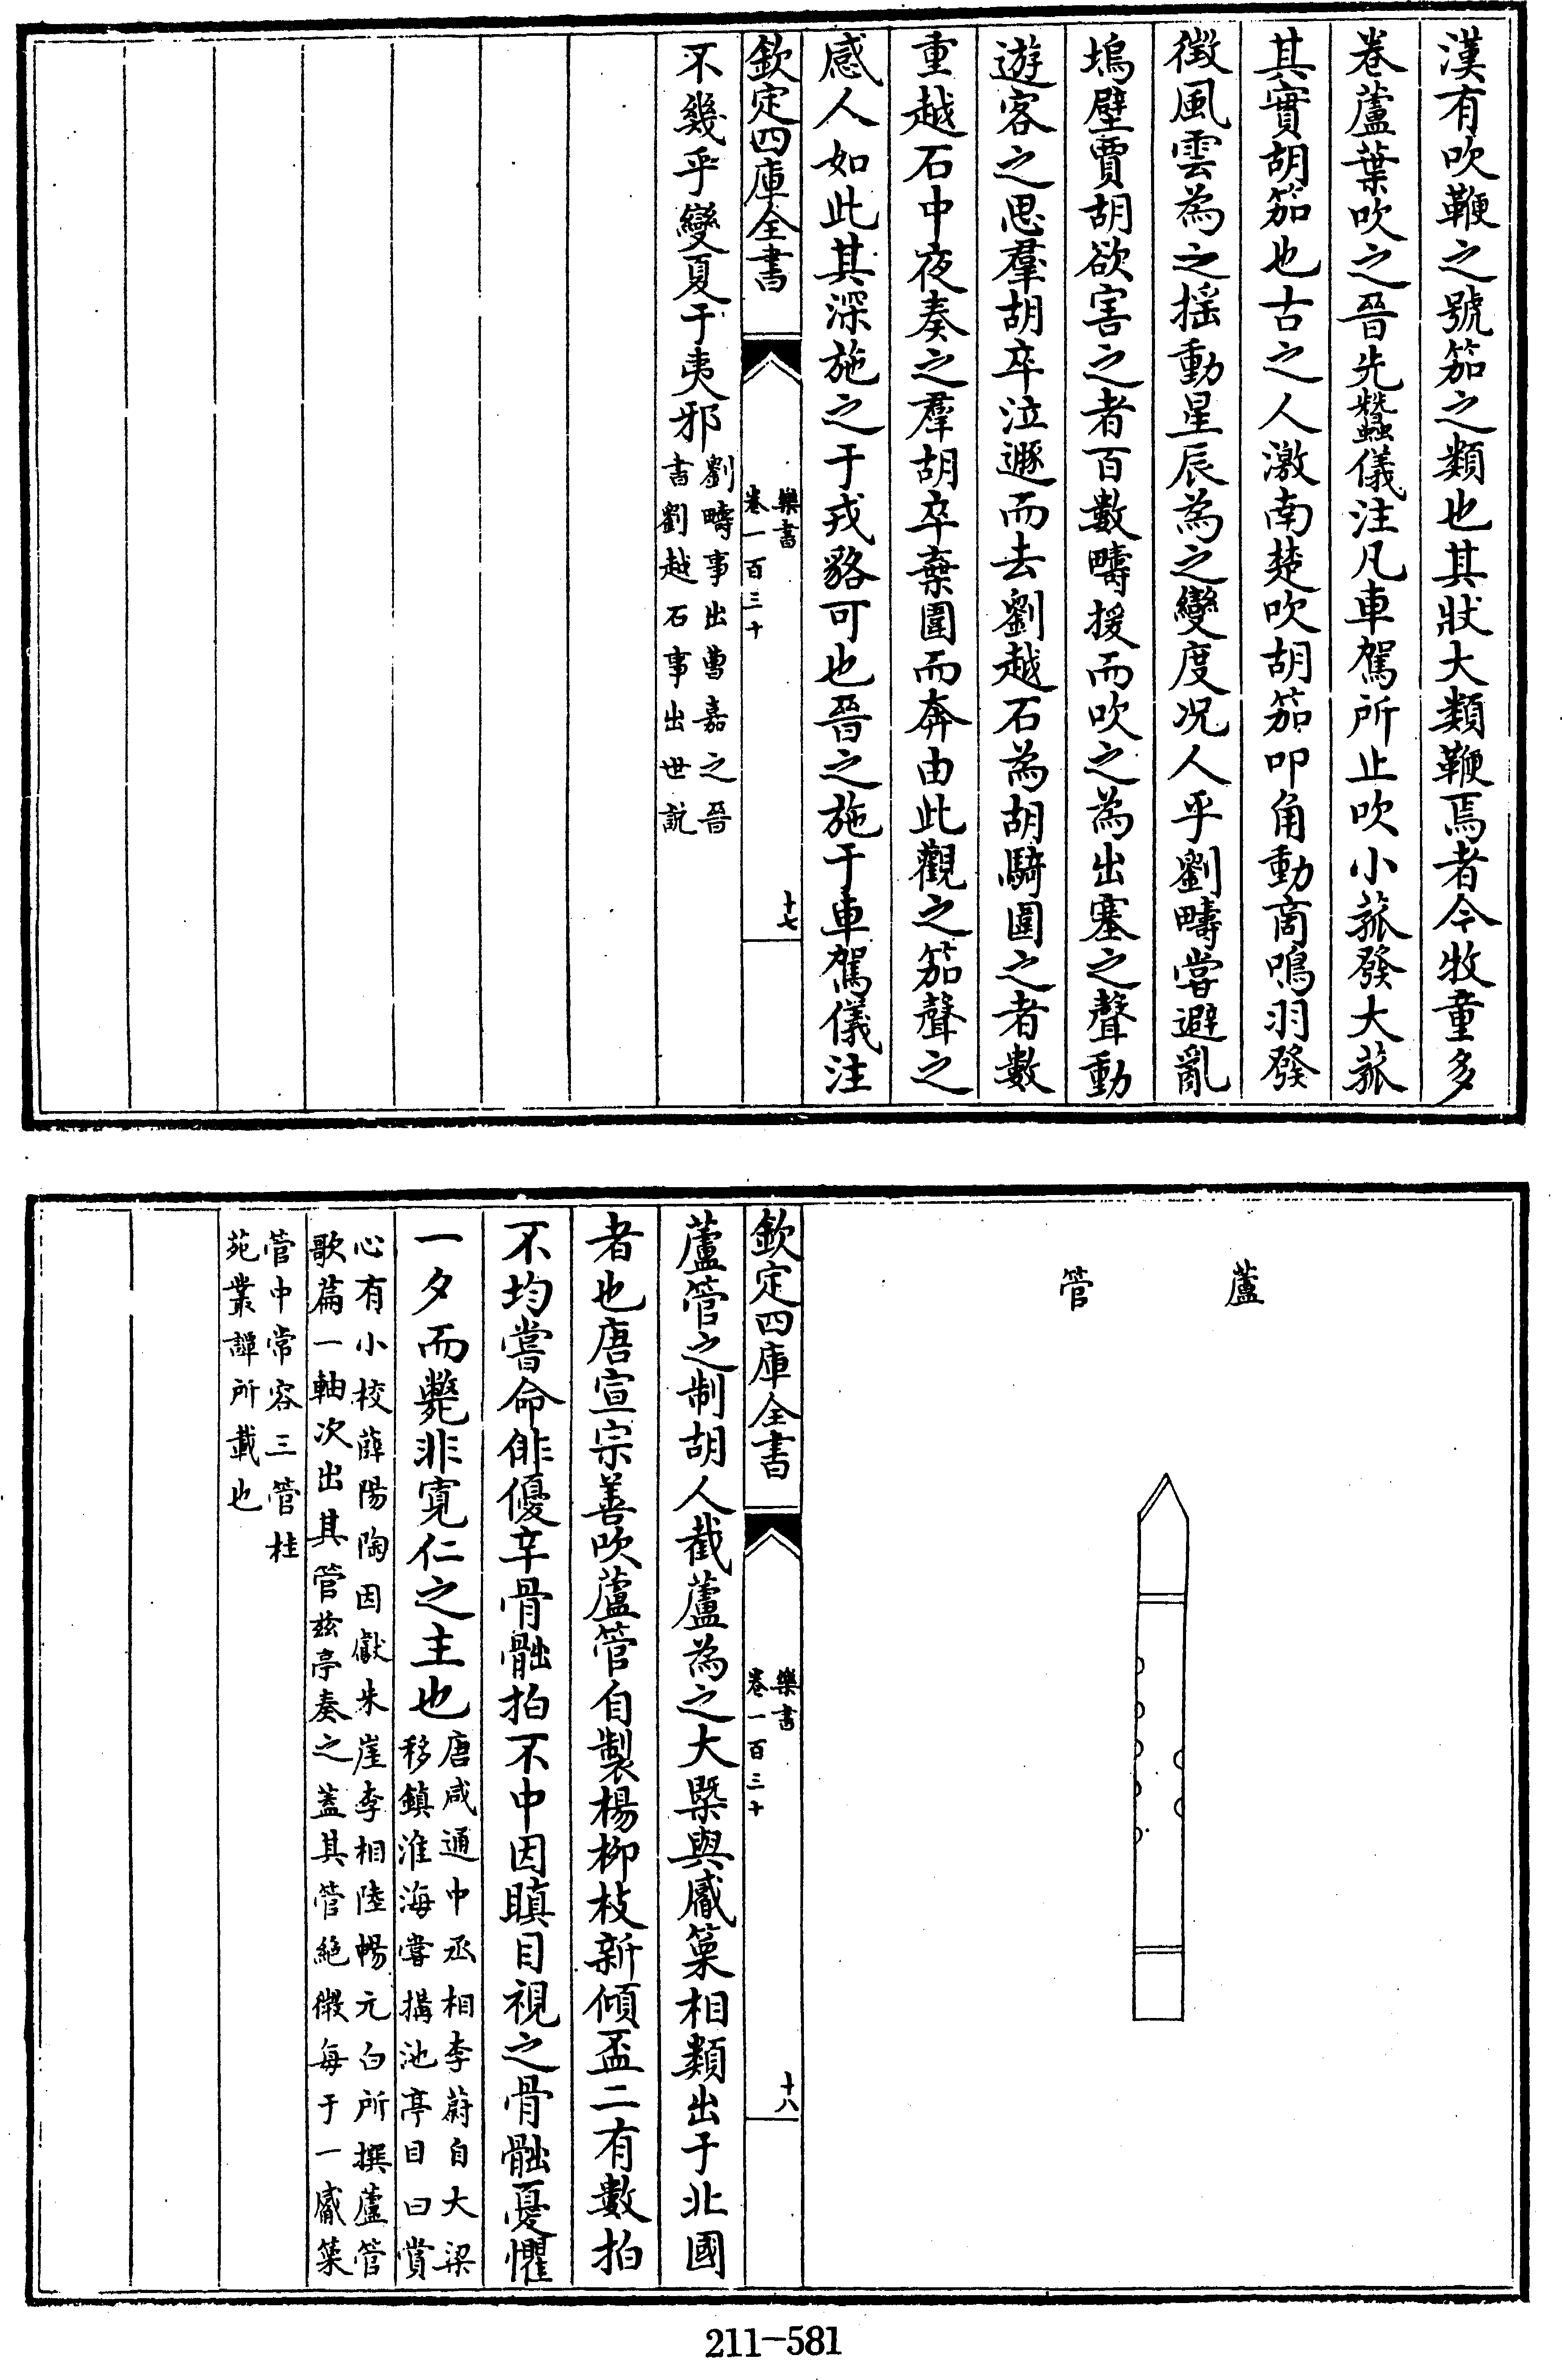 漢有吹鞭之號笳之類也其狀大類鞭焉者今牧童多
卷蘆葉吹之晉先蠶儀注凡車駕所止吹小菰發大菰
其實胡笳也古之人激南楚吹胡笳叩角動商鳴羽發
徵風雲為之揺動星辰為之變度况人乎劉疇嘗避亂
塢壁賈胡欲害之者百數疇援而吹之為出塞之聲動
遊客之思羣胡卒泣遯而去劉越石為胡騎圍之者數
重越石中夜奏之羣胡卒棄圍而奔由此觀之笳聲之
感人如此其深施之于戎貉可也晉之施于車駕儀注
欽定四庫全書
樂書
卷一百三十
十七
不幾乎變夏于夷邪
劉疇事出曹嘉之晉
書劉越石事出世説
蘆管
欽定四庫全書
樂書
卷一百三十
十八
蘆管之制胡人截蘆為之大槩與觱篥相類出于北國
者也唐宣宗善吹蘆管自製楊柳枝新傾盃二有數拍
不均嘗命俳優辛骨䯇拍不中因瞋目視之骨䯇憂懼
一夕而斃非寛仁之主也
唐咸通中丞相李蔚自大梁
移鎮淮海嘗搆池亭目曰賞
心有小校薛陽陶因獻朱崖李相陸暢元白所撰蘆管
歌篇一軸次出其管兹亭奏之葢其管絶微每于一觱篥
管中常容三管桂
苑叢譚所載也
211-581